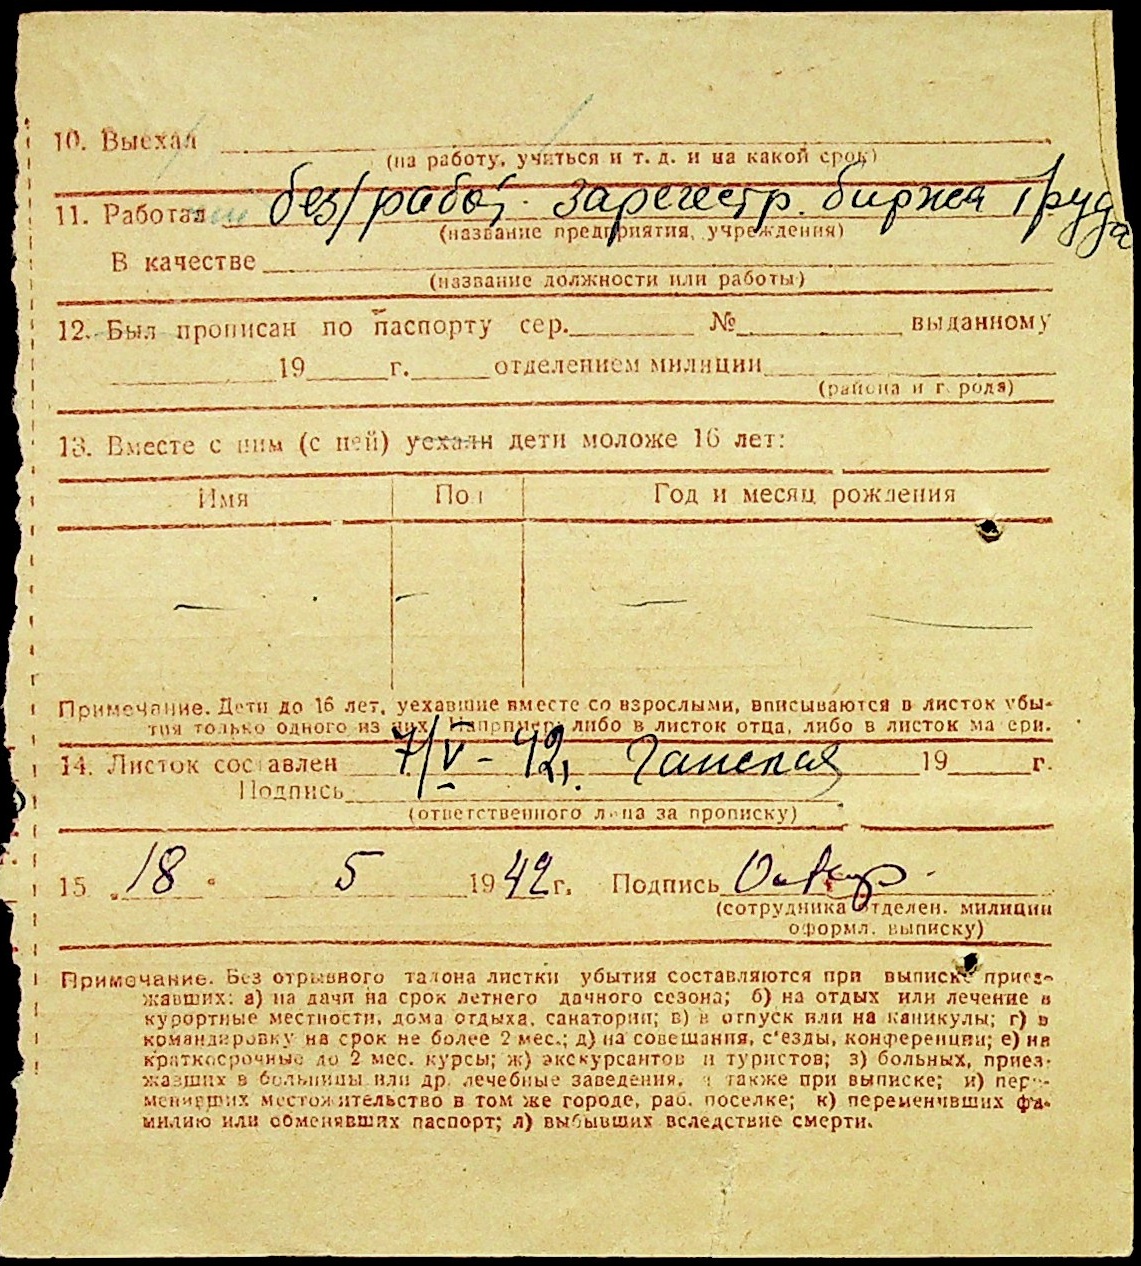 10. Выехал
(на работу, учиться и т. д. и на какой срок)
11. Работал без/работ. зарегестр. биржа труда
(название предприятия, учреждения)
В качестве
(название должности или работы)
12. Был прописан по паспорту сер. № выданному
19 г. отделением милиции
(района и города)
13. Вместе с ним (с ней) уехали дети моложе 16 лет:
Имя Пол Год и месяц рождения
Примечание. Дети до 16 лет, уехавшие вместе со взрослыми, вписываются в листок убы-
тия только одного из них. Например: либо в листок отца, либо в листок матери.
14. Листок составлен 7/V - 42. 19 г.
Подпись
(ответственного лица за прописку)
15 „18" 5 1942 г. Подпись
(сотрудника отделен. милиции
оформл. выписку)
Примечание. Без отрывного талона листки убытия составляются при выписке приез-
жавших: а) на дачи на срок летнего дачного сезона; б) на отдых или лечение в
курортные местности, дома отдыха, санатории; в) в отпуск или на каникулы; г) в
командировку на срок не более 2 мес.; д) на совещания, с'езды, конференции; е) на
краткосрочные до 2 мес. курсы; ж) экскурсантов и туристов; з) больных, приез-
жавших в больницы или др. лечебные заведения, а также при выписке; и) пере-
менивших местожительство в том же городе, раб. поселке; к) переменивших фа-
милию или обменявших паспорт; л) выбывших вследствие смерти.